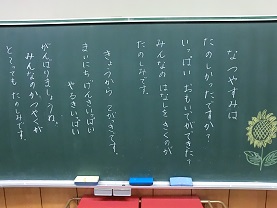 なつやすみは
たのしかったですか？
いっぱい おもいでができた？
みんなの はなしをきくのが
たのしみです。
きょうから 2がっきです。
まいにち げんきいっぱい
やるきいっぱい
がんばりましょうね。
みんなの かつやくが
とってもたのしみです。